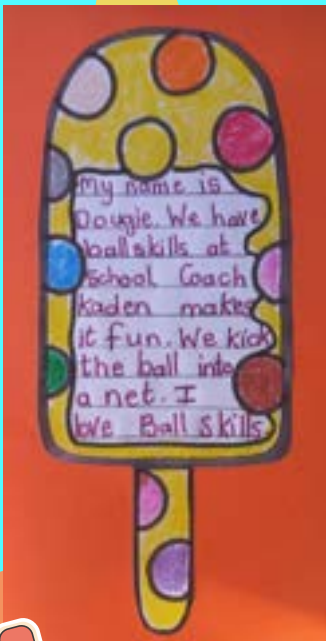 My name is
Dougie. We have
ballskills at
School Coach
kaden makes
it fun. We kick
the ball into
a net. I
love Ball skills